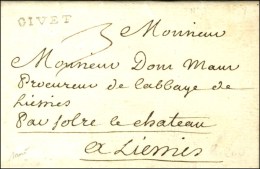 GIVET
3
Monsieur
Monsieur Dom Maur
Procureur de Labbaye de
Liemies
Par solre le chateau
a Liemies